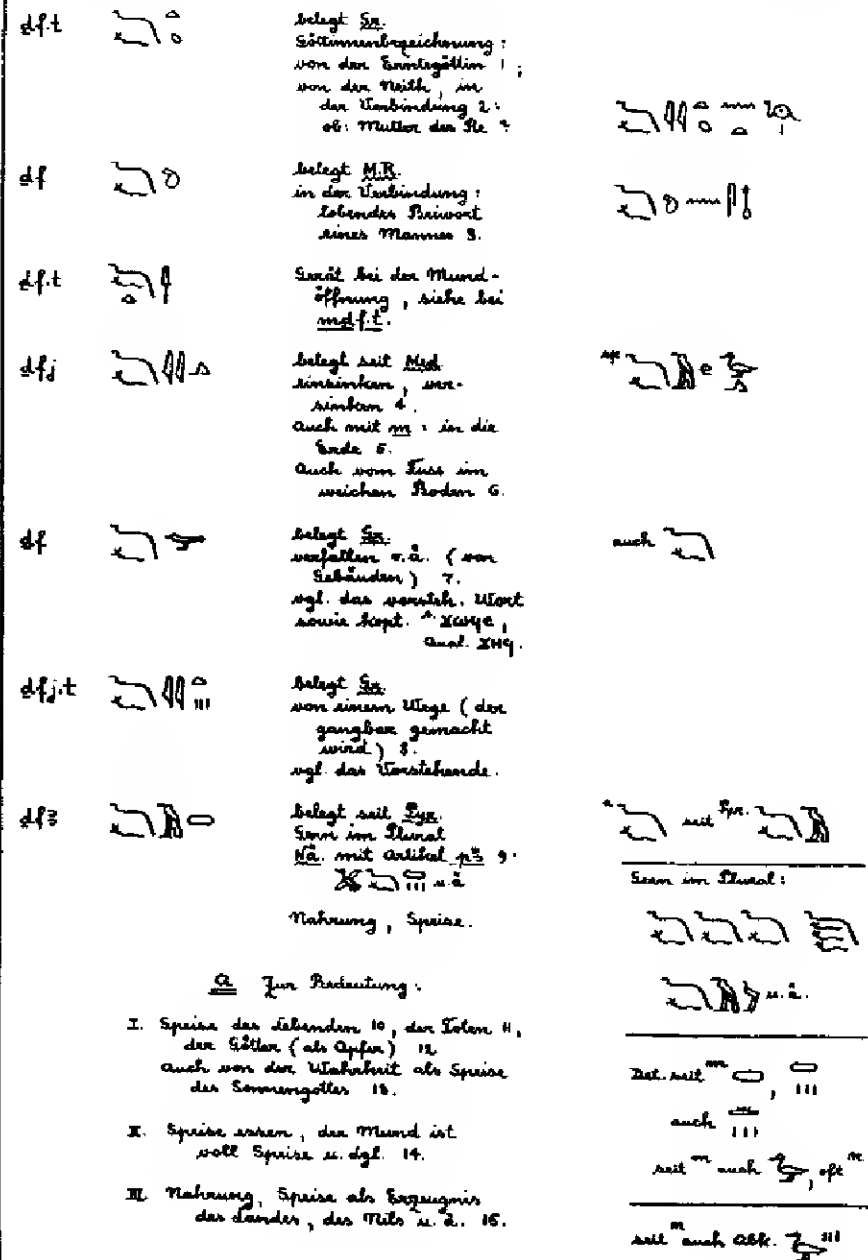 ḏf.t
belegt Gr.
Göttinnenbezeichnung:
von der Erntegöttin 1;
von der Neith, in
der Verbindung 2:
ob: Mutter des Re?
ḏf
belegt M.R.
in der Verbindung:
lobendes Beiwort
eines Mannes 3.
ḏf.t
Gerät bei der Mund-
öffnung, siehe bei
mḏf.t.
ḏfj
belegt seit Med
einsinken, ver-
sinken 4.
Auch mit m: in die
Erde 5.
Auch vom Fuss im
weichen Boden 6.
ḏf
belegt Gr.
verfallen o.ä. (von
Gebäuden) 7.
vgl. das vorsteh. Wort
sowie kopt. ϫⲱϥⲉ,
Qual. ϫⲏϥ.
auch
ḏfj.t
belegt Gr.
von einem Wege (der
gangbar gemacht
wird) 8.
vgl. das Vorstehende.
ḏfꜣ
belegt seit Pyr.
Gern im Plural
Nä. mit Artikel pꜣ 9.
u.ä
Nahrung, Speise.
seit Pyr.
Gern im Plural:
u.ä.
A Zur Bedeutung:
I. Speise der Lebenden 10, der Toten 11,
der Götter (als Opfer) 12
auch von der Wahrheit als Speise
des Sonnengottes 13.
II. Speise essen, der Mund ist
voll Speise u. dgl. 14.
III. Nahrung, Speise als Erzeugnis
des Landes, des Nils u. ä. 15.
Det. seit m
auch
seit m auch , oft
seit m auch Abk.